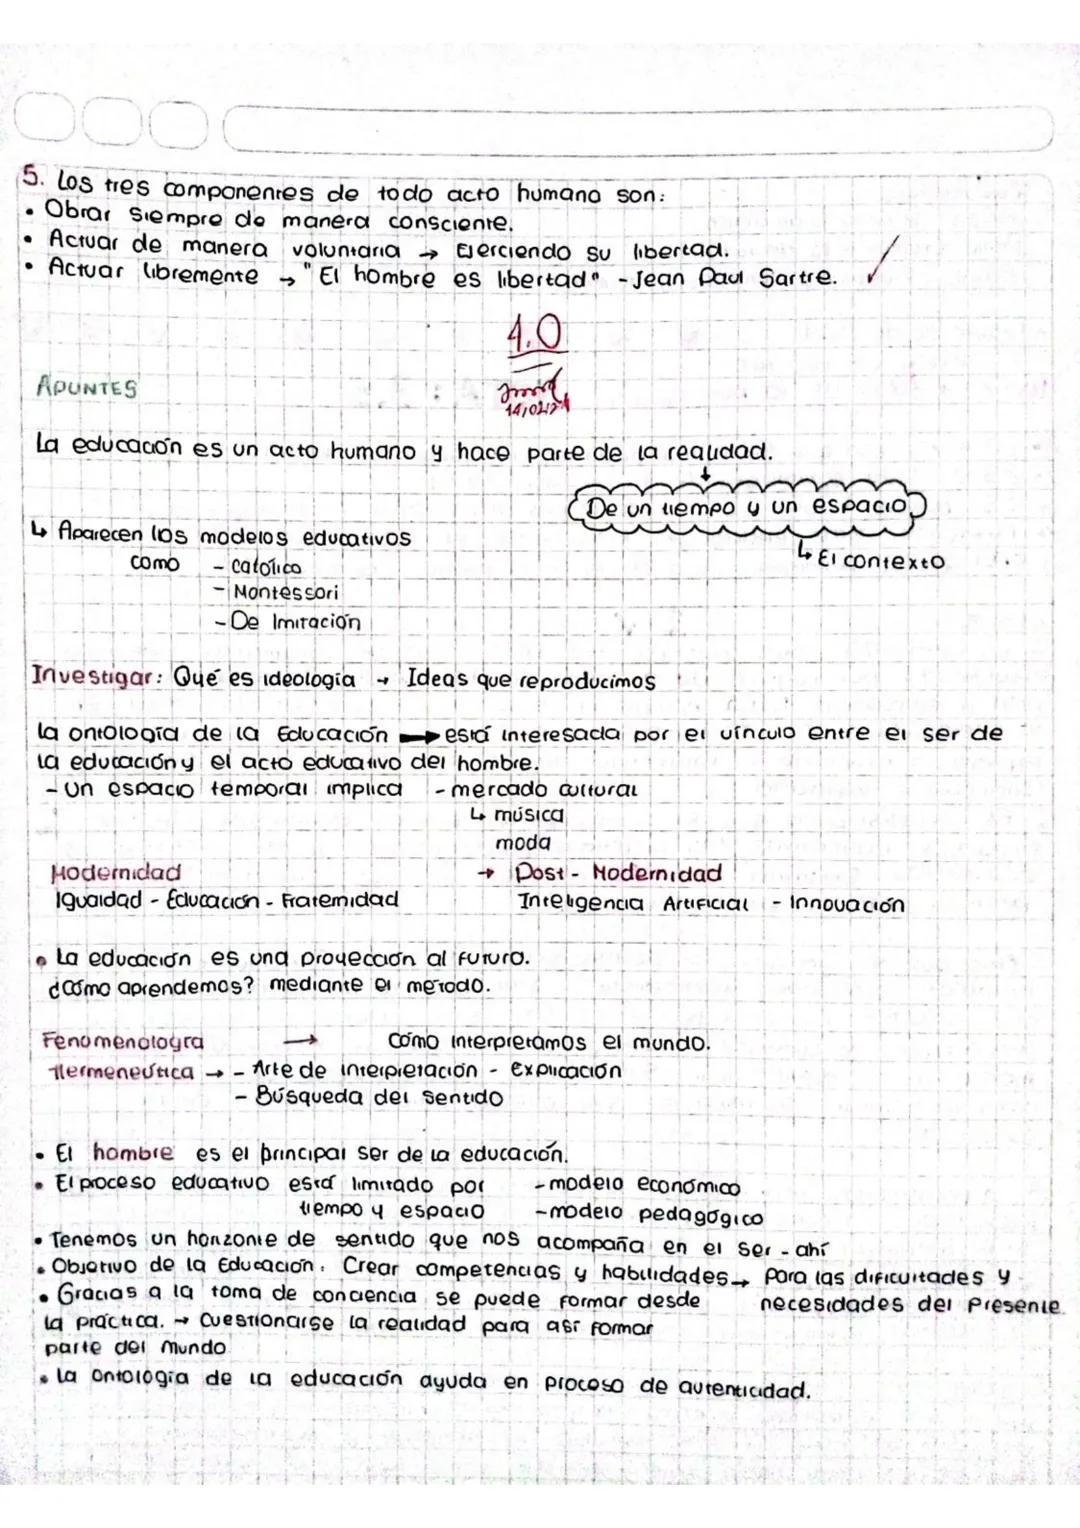 5. Los tres componentes de todo acto humano son:
• Obrar siempre de manera consciente.
• Actuar de manera voluntaria → Ejerciendo su libertad.
• Actuar libremente → "El hombre es libertad" - Jean Paul Sartre.
4.0
14/02/24
APUNTES
La educación es un acto humano y hace parte de la realidad.
De un tiempo y un espacio
↳ El contexto
↳ Aparecen los modelos educativos
como - católico
- Montessori
- De Imitación
Investigar: Qué es ideología → Ideas que reproducimos
La ontología de la Educación → está interesada por el vínculo entre el ser de
la educación y el acto educativo del hombre.
- Un espacio temporal implica - mercado cultural
↳ música
moda
Modernidad → Post - Modernidad
Igualdad - Educación - Fraternidad Inteligencia Artificial - Innovación
• La educación es una proyección al futuro.
¿Cómo aprendemos? mediante el método.
Fenomenología → Cómo interpretamos el mundo.
Hermenéutica → - Arte de interpretación - Explicación
- Búsqueda del sentido
• El hombre es el principal ser de la educación.
• El proceso educativo está limitado por - modelo económico
tiempo y espacio - modelo pedagógico
• Tenemos un horizonte de sentido que nos acompaña en el ser - ahí
• Objetivo de la Educación: Crear competencias y habilidades → para las dificultades y
• Gracias a la toma de conciencia se puede formar desde necesidades del Presente.
la práctica. → Cuestionarse la realidad para así formar
parte del mundo
• La ontología de la educación ayuda en proceso de autenticidad.